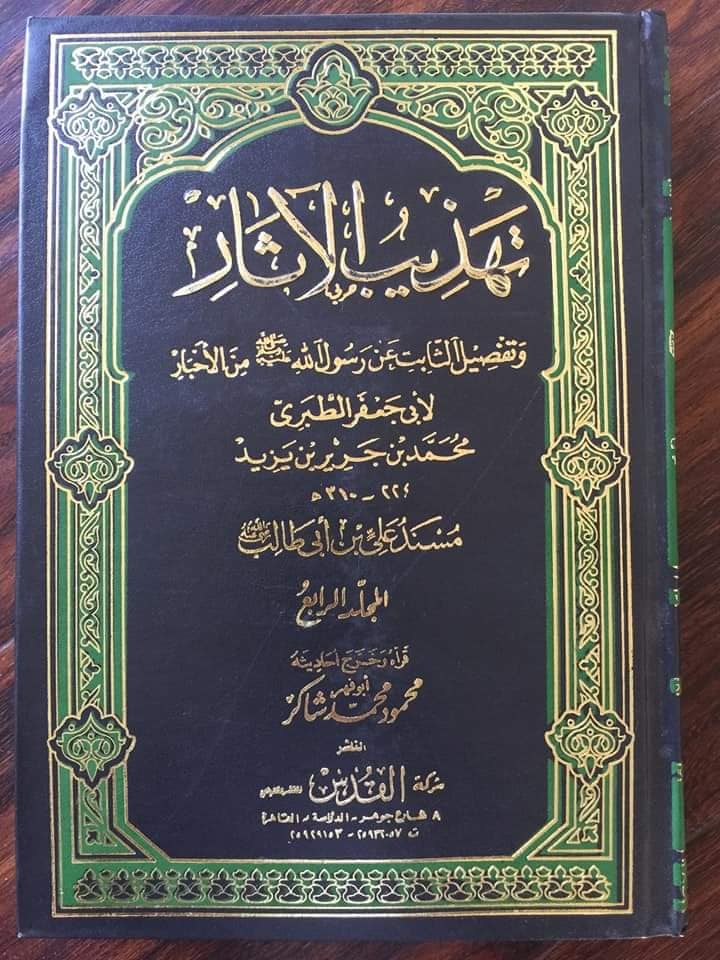 تهذيب الآثار
وتفصيل الثابت عن رسول الله ﷺ من الأخبار
لأبي جعفر الطبري
محمد بن جرير بن يزيد
٢٢٤ - ٣١٠ هـ
مسند علي بن أبي طالب
المجلد الرابع
قرأه وخرج أحاديثه
أبو فهر
محمود محمد شاكر
الناشر
شركة القدس
٨ شارع جوهر - الدراسة - القاهرة
ت ٢٥٩٣٢٠٥٧ - ٢٥٩٢٩١٥٣